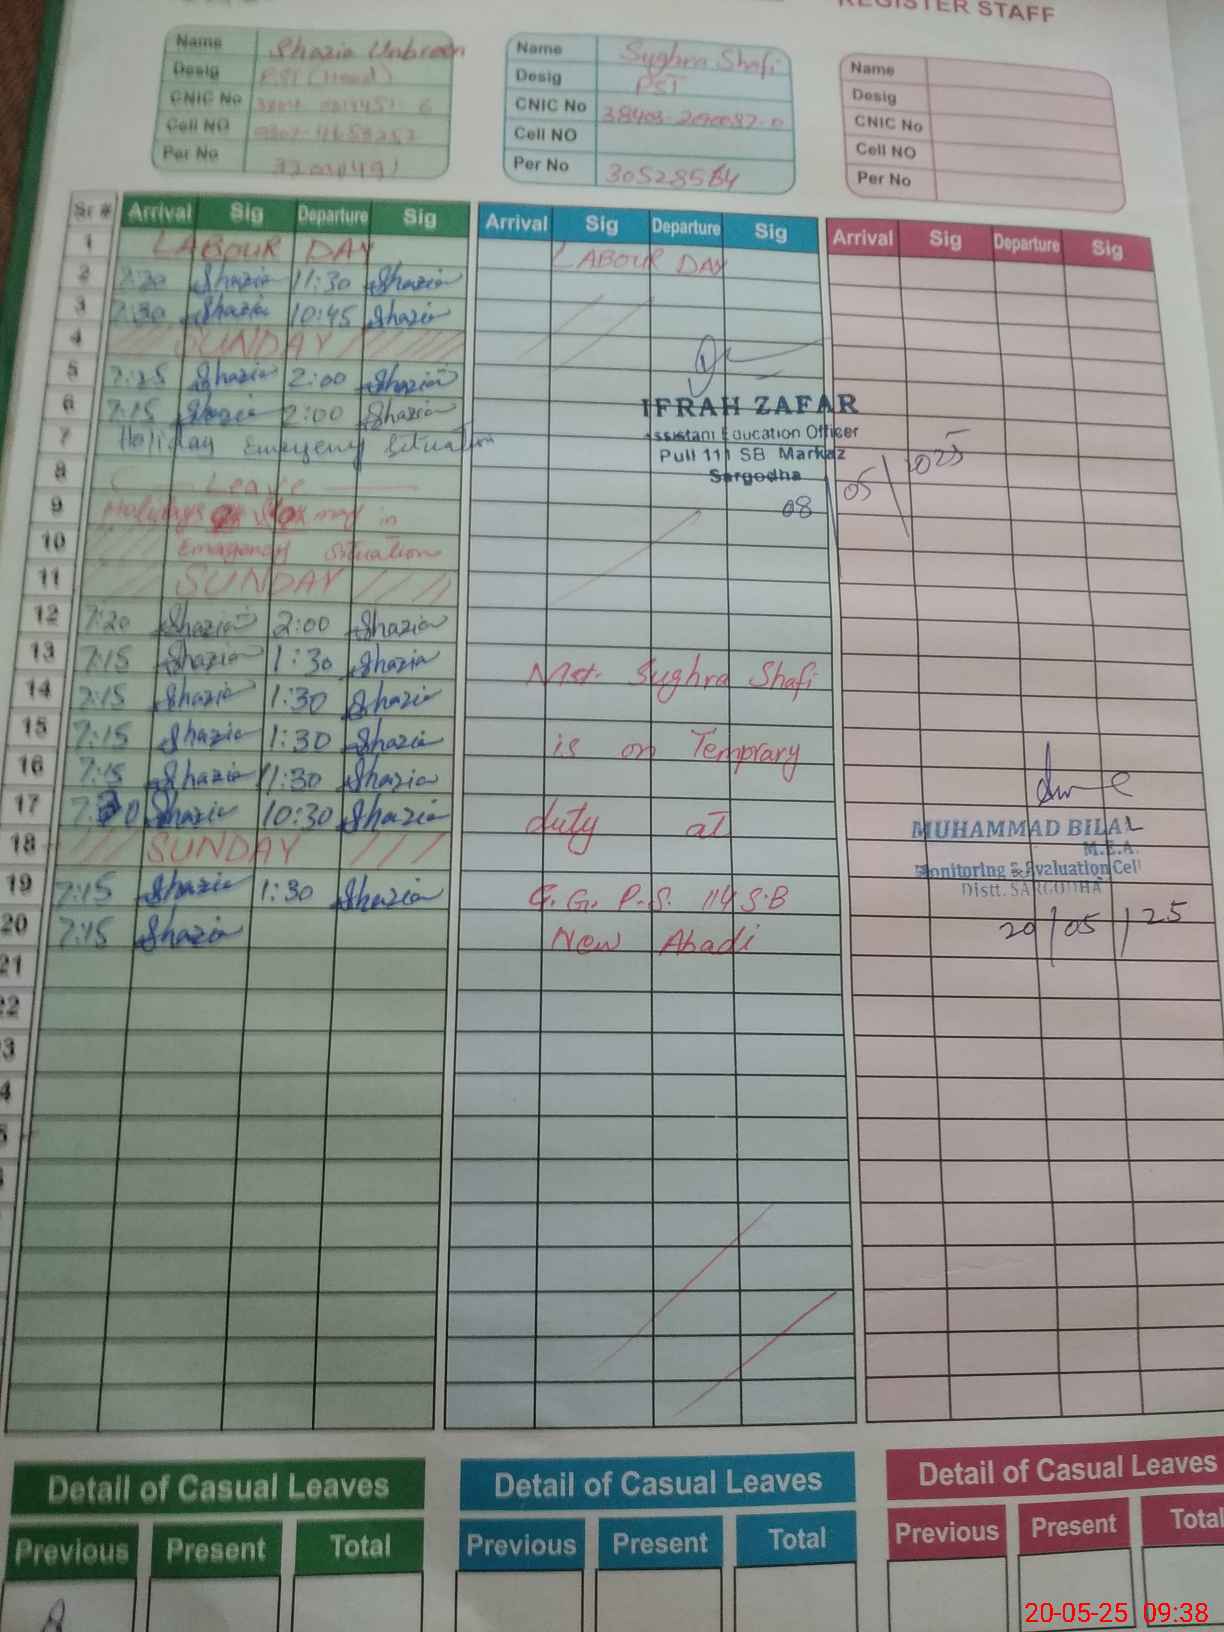 REGISTER STAFF
Name Shazia Unbreen
Desig PST (Head)
CNIC No
Cell NO
Per No
Name Sughra Shafi
Desig PST
CNIC No
Cell NO
Per No
Name
Desig
CNIC No
Cell NO
Per No
Sr # Arrival Sig Departure Sig Arrival Sig Departure Sig Arrival Sig Departure Sig
1 LABOUR DAY LABOUR DAY
2 7:20 Shazia 11:30 Shazia
3 7:30 Shazia 10:45 Shazia
4 SUNDAY
5 7:25 Shazia 2:00 Shazia
6 7:15 Shazia 2:00 Shazia
IFRAH ZAFAR
Assistant Education Officer
Pull 111 SB Markaz
Sargodha
08/05/2025
7 Holiday Emergency Situation
8 Leave
9 Holidays in
10 Emagency Situation
11 SUNDAY
12 7:20 Shazia 2:00 Shazia
13 7:15 Shazia 1:30 Shazia Mst. Sughra Shafi
14 7:15 Shazia 1:30 Shazia
15 7:15 Shazia 1:30 Shazia is on Temprary
16 7:15 Shazia 11:30 Shazia
17 Shazia 10:30 Shazia duty at
18 SUNDAY
MUHAMMAD BILAL
M.E.A.
Monitoring & Evaluation Cell
Distt. SARGODHA
20/05/25
19 7:15 Shazia 1:30 Shazia G.G. P.S. 114 S.B
20 7:15 Shazia New Abadi
21
22
3
4
Detail of Casual Leaves Detail of Casual Leaves Detail of Casual Leaves
Previous Present Total Previous Present Total Previous Present Total
20-05-25 09:38